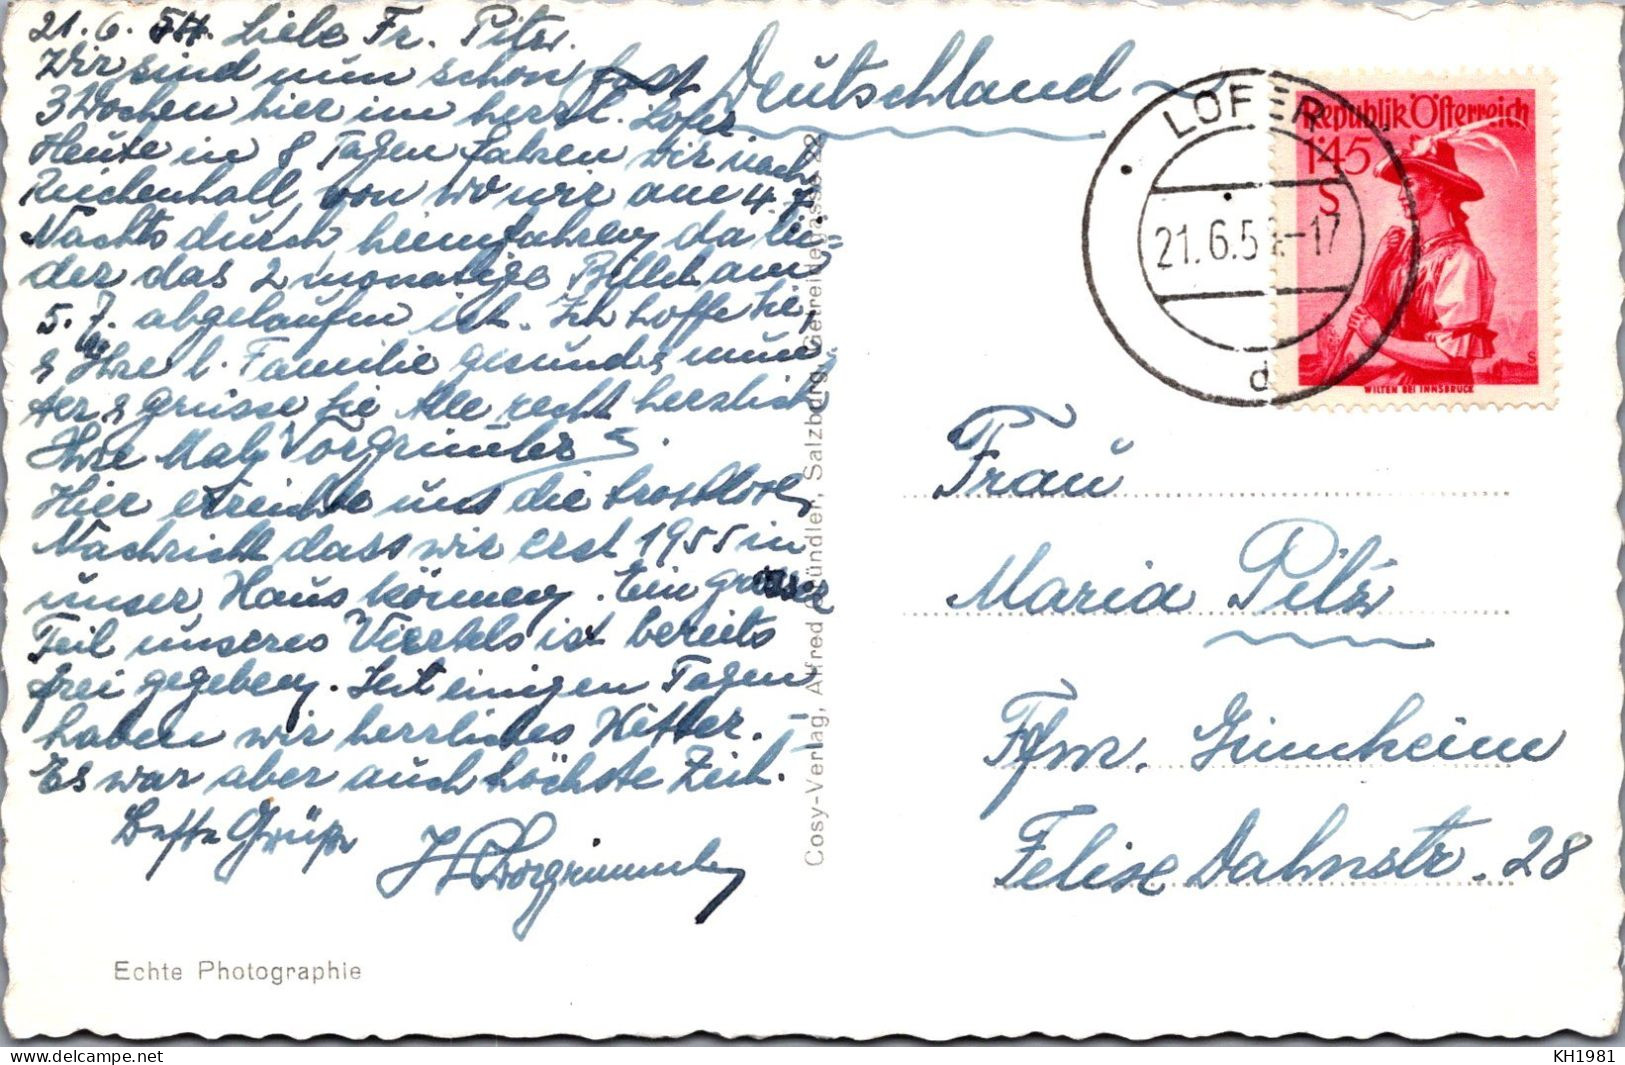 21.6.54. Liebe Fr. Pilz.
Wir sind nun schon fast
3 Wochen hier im herrl. Lofer.
Heute in 8 Tagen fahren wir nach
Reichenhall, von wo wir am 4.7.
Nachts durch heimfahren, da lei=
der das 2 monatige Billet am
5.7. abgelaufen ist. Ich hoffe Sie,
& Ihre l. Familie gesund & mun=
ter & grüsse Sie Alle recht herzlich
Ihre Maly Vorgrimler
Hier erreichte uns die trostlose
Nachricht dass wir erst 1955 in
unser Haus können. Ein grosser
Teil unseres Viertels ist bereits
frei gegeben. Seit einigen Tagen
haben wir herrliches Wetter. –
Es war aber auch höchste Zeit.
Beste Grüße
Vorgrimler
Echte Photographie
Cosy-Verlag, Alfred Gründler, Salzburg, Getreidegasse 22
Deutschland
LOFER
21.6.54-17
d
Republik Österreich
1'45
S
WILTEN BEI INNSBRUCK
Frau
Maria Pilz
Ffm. Ginnheim
Felix Dahnstr. 28
KH1981